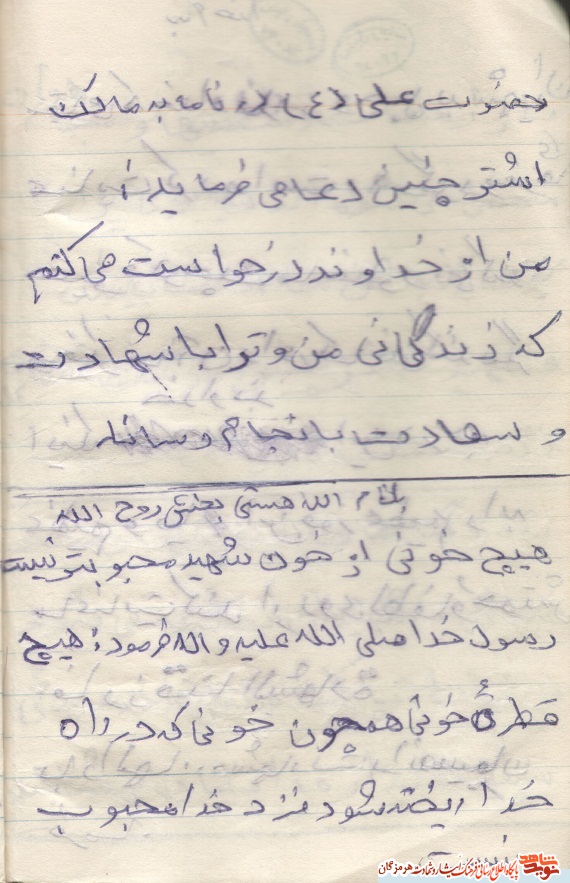 حضرت علی (ع) در نامه به مالک
اشتر چنین دعا می فرماید:
من از خداوند درخواست می کنم
که زندگانی من و تو را با شهادت
و سعادت بانجام رساند
بنام الله هستی بخش روح الله
هیچ خونی از خون شهید محبوبتر نیست
رسول خدا صلی الله علیه و اله فرمود: هیچ
قطرهٔ خونی همچون خونی که در راه
خدا ریخته شود نزد خدا محبوب
نیست
نوید شاهد پایگاه اطلاع رسانی فرهنگ ایثار و شهادت هرمزگان